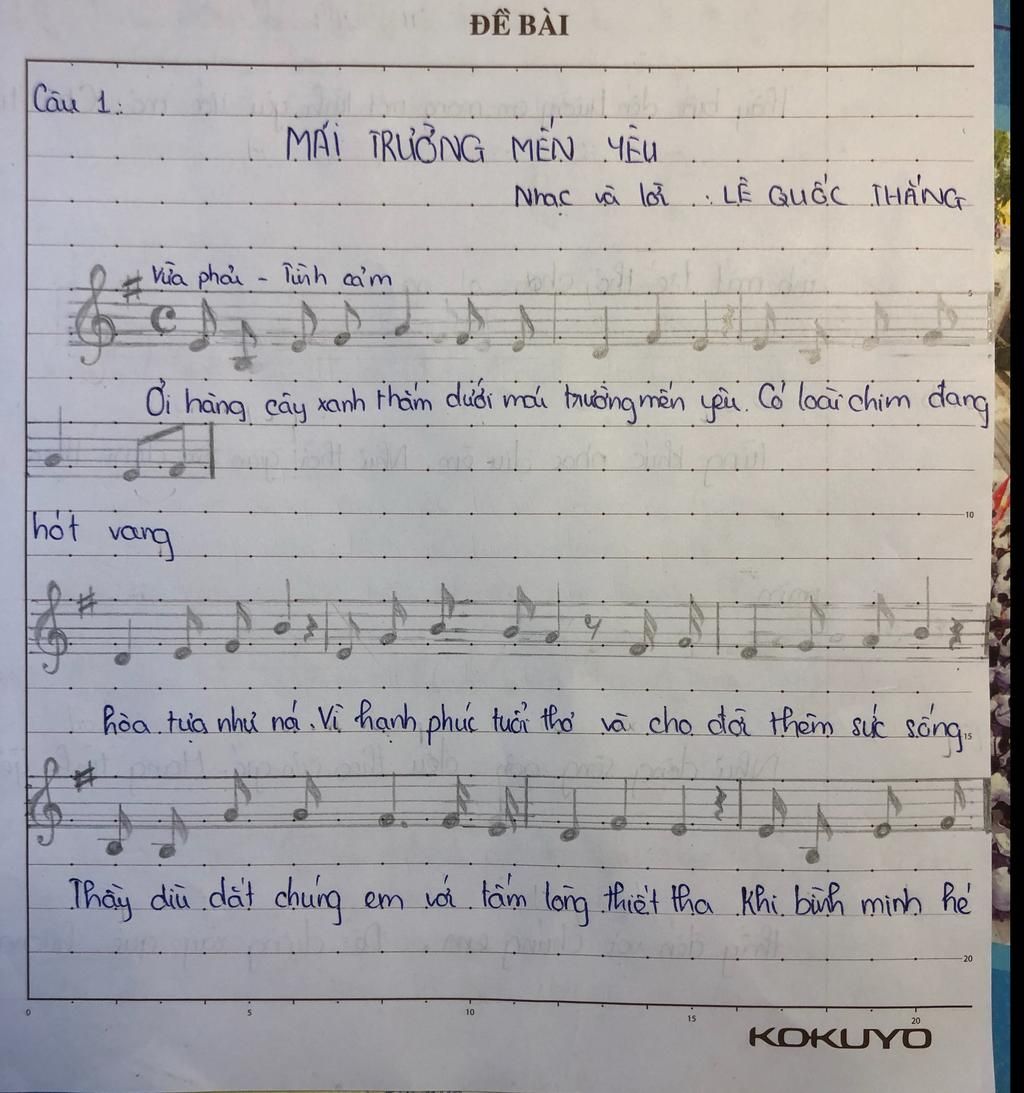 ĐỀ BÀI
Câu 1:
MÁI TRƯỜNG MẾN YÊU
Nhạc và lời : LÊ QUỐC THẮNG
Vừa phải - Tình cảm
5
Ơi hàng cây xanh thắm dưới mái trường mến yêu. Có loài chim đang
10
hót vang
hòa tựa như nói. Vì hạnh phúc tuổi thơ và cho đời thêm sức sống
15
Thầy dìu dắt chúng em với tấm lòng thiết tha Khi bình minh hé
20
0 5 10 15 20
KOKUYO